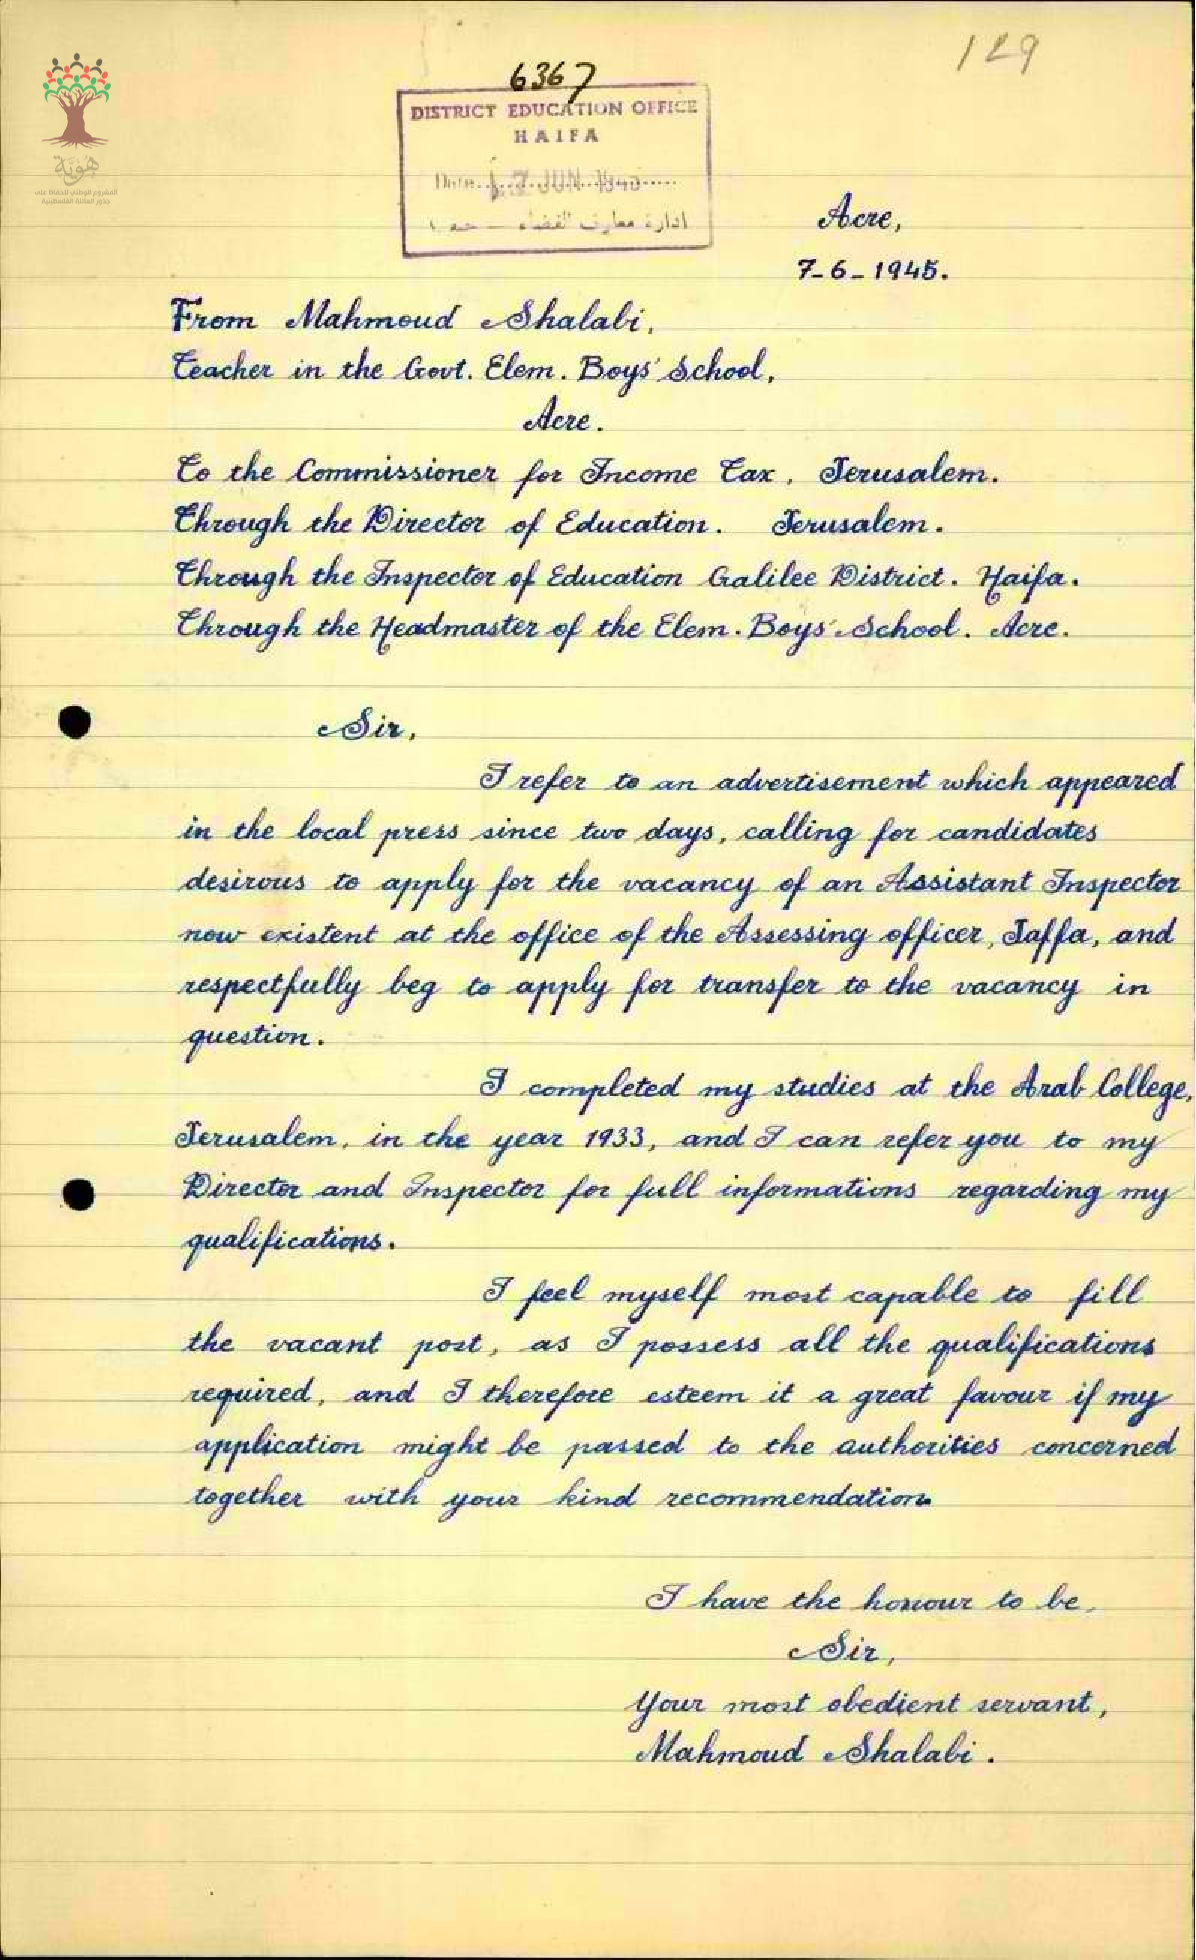 129
6367
DISTRICT EDUCATION OFFICE
HAIFA
Date 12 JUN 1945
ادارة معارف القضاء –
هوية
المشروع الوطني للحفاظ على
جذور العائلة الفلسطينية
Acre,
7-6-1945.
From Mahmoud Shalabi,
Teacher in the Govt. Elem. Boys' School,
Acre.
To the Commissioner for Income Tax, Jerusalem.
Through the Director of Education. Jerusalem.
Through the Inspector of Education Galilee District. Haifa.
Through the Headmaster of the Elem. Boys' School. Acre.
Sir,
I refer to an advertisement which appeared
in the local press since two days, calling for candidates
desirous to apply for the vacancy of an Assistant Inspector
now existent at the office of the Assessing officer, Jaffa, and
respectfully beg to apply for transfer to the vacancy in
question.
I completed my studies at the Arab College,
Jerusalem, in the year 1933, and I can refer you to my
Director and Inspector for full informations regarding my
qualifications.
I feel myself most capable to fill
the vacant post, as I possess all the qualifications
required, and I therefore esteem it a great favour if my
application might be passed to the authorities concerned
together with your kind recommendation.
I have the honour to be,
Sir,
Your most obedient servant,
Mahmoud Shalabi.